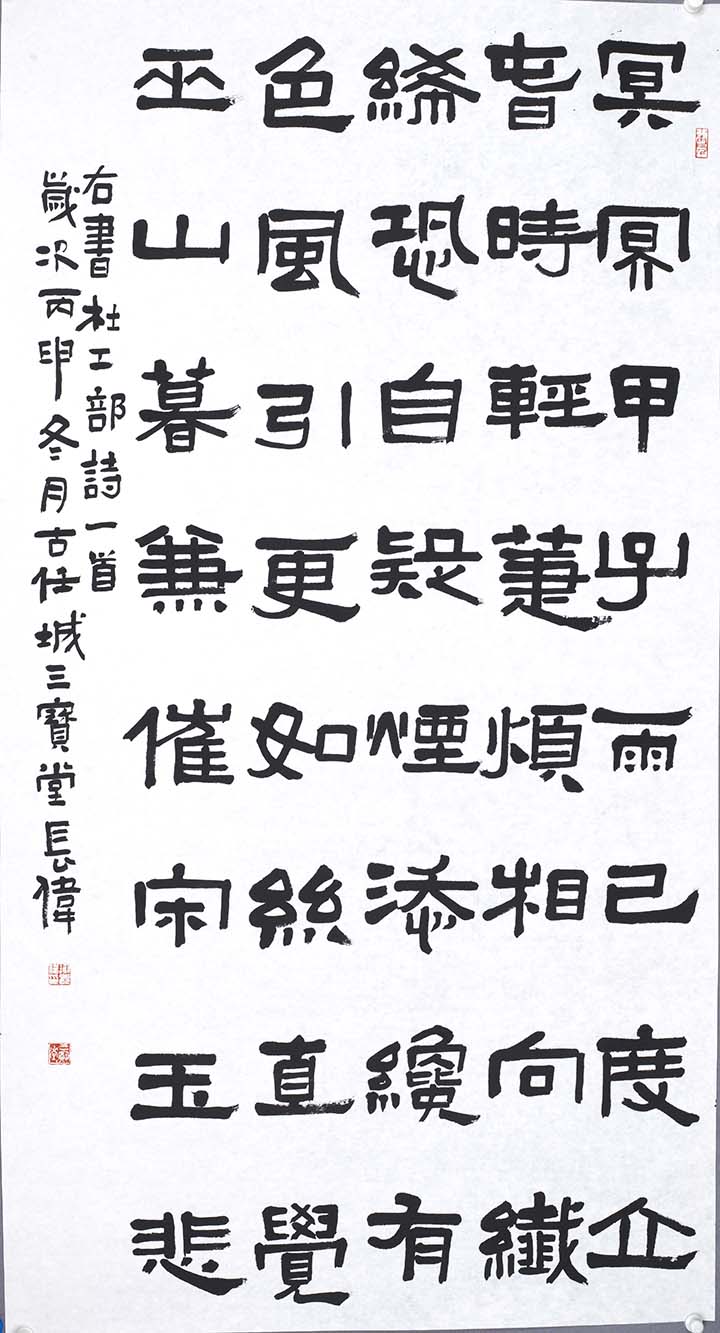 冥冥甲子雨已度立
春時輕萐煩相向纖
絺恐自疑煙添纔有
色風引更如絲直覺
巫山暮兼催宋玉悲
右書杜工部詩一首
歲次丙申冬月古任城三寶堂長偉